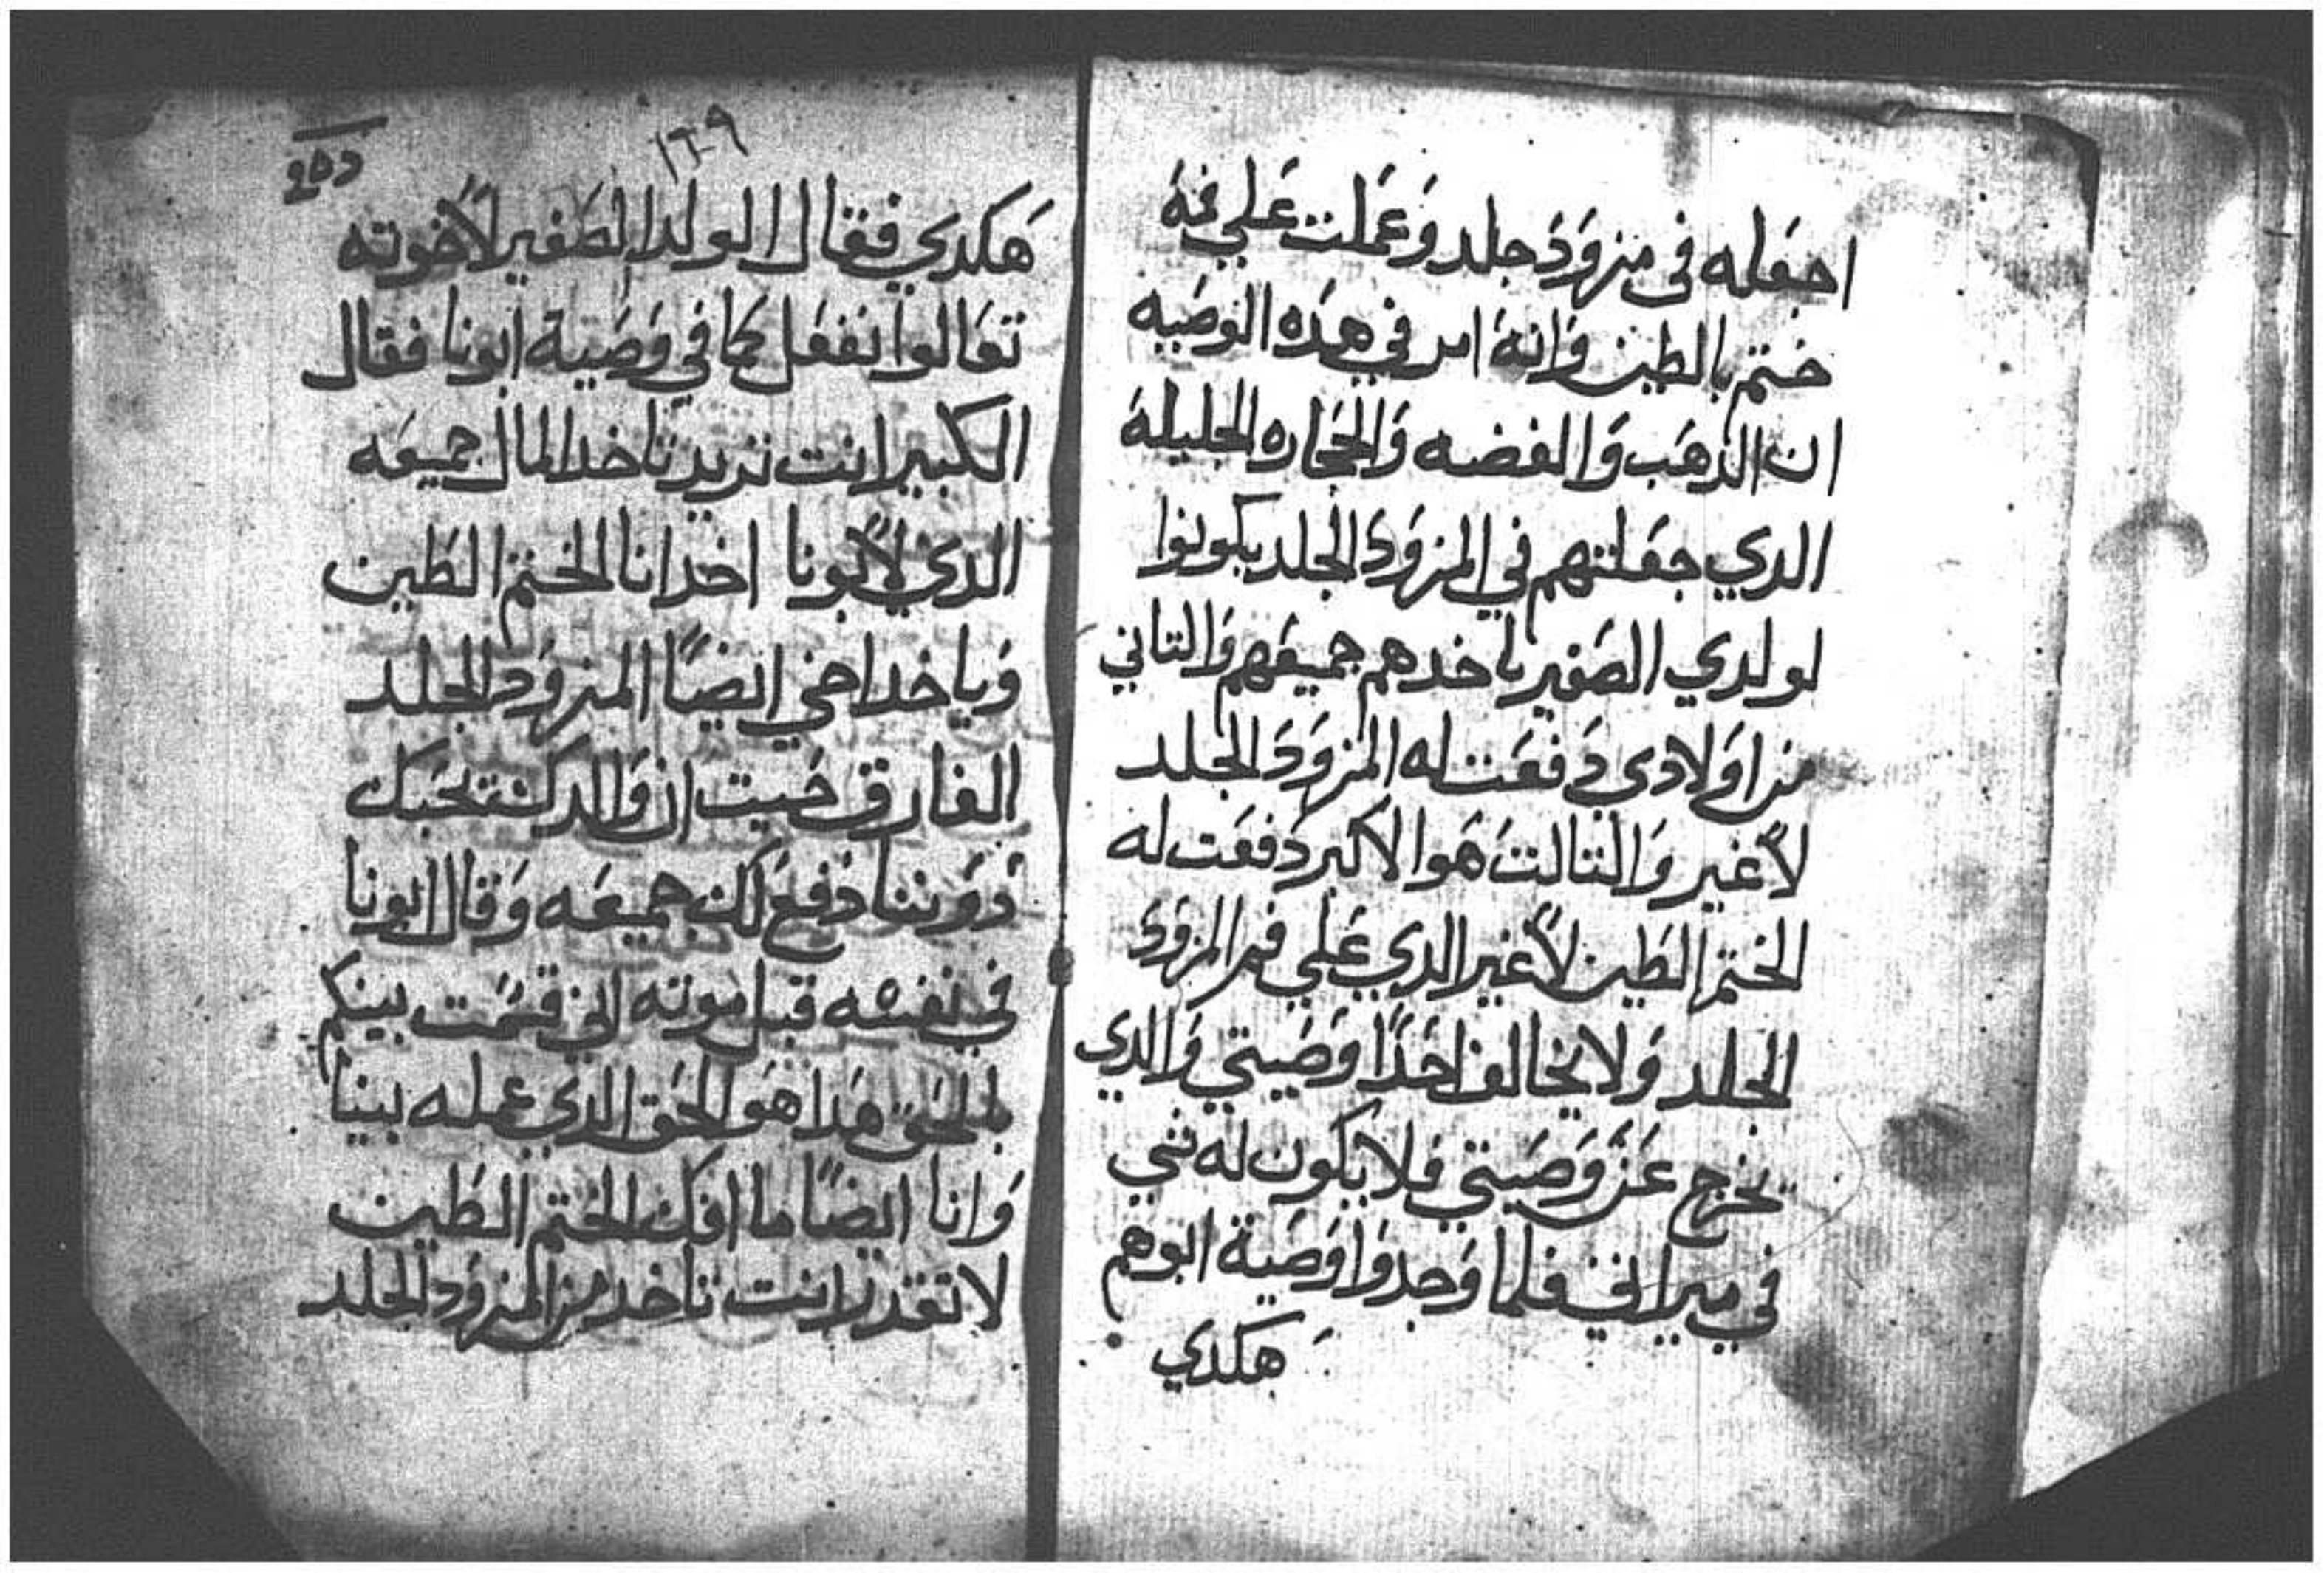 اجعَله في مزوَدَ جلد وَعَملت عَلي فمهَ
ختم بالطين وَانهَ امر في هدَه الوصَيه
ان الدهَب وَالفضه وَالحجَاره الجليلهَ
الدي جعَلتهم في المزوَدَ الجلد يكونوا
لولدي الصَغير ياخدهم جميعَهم وَالتاني
من اوَلادي دَفعَت له المزوَدَ الجلد
لاَغير وَالتالت هَوا الاكبر دَفعَت له
الختم الطَين لاَغير الدي عَلي فم المزوَدَ
الجلد وَلا يخالف احَدًا وَصَيتي وَالدي
يخرج عَن وَصَيتي فلا يكون له شي
في ميراتي فلما وَجدوَا وَصَية ابوهم
هكدي
١٢٠٩
هَكدي فقال الولد الصَغير لاَخوته
تعَالوا نفعَل كما في وَصَية ابونا فقال
الكبير انت تريد تاخد المال جميعَه
الدي لاَبونا اخد انا الختم الطَين
وَياخد اخي ايضًا المزوَد الجلد
الفارق حَيت ان وَالدك يحَبك
دوَننا دَفعَ لك جميعَه وَقال ابونا
في نفسَه قبل موته اني قسَمت بينكم
بالحَق هَدا هَو الحَق الدي عمله بيننا
وَانا ايضًا ما افك الختم الطَين
لا تقدر انت تاخد من المزوَد الجلد